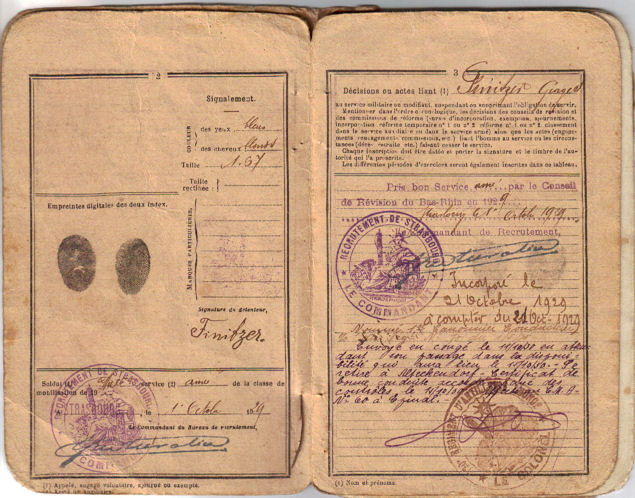 2
Signalement.
COULEUR
des yeux bleus
des cheveux blonds
Taille 1.67
Taille
rectifiée :
Empreintes digitales des deux index.
MARQUES PARTICULIÈRES.
Signature du détenteur,
Finitzer.
Soldat (1) service (2) armé de la classe de
mobilisation de 19
, le 1 Octob 1929
Le Commandant du Bureau de recrutement,
RECRUTEMENT DE STRASBOURG
STRASBOURG
(1) Appelé, engagé volontaire, ajourné ou exempté.
3
Décisions ou actes liant (1) Finitzer Georges
au service militaire ou modifiant, suspendant ou supprimant l'obligation de servir.
Mentionner dans l'ordre chronologique, les décisions des conseils de révision et
des commissions de réforme (prise d'incorporation, exemption, ajournements,
incorporation réforme temporaire n° 1 ou n° 2 réforme n° 1 ou n° 2 classement
dans le service auxiliaire ou dans le service armé) ainsi que les actes (engagements
rengagements commissions, etc.) liant l'homme au service ou les circonstances
(décès retraite etc.) faisant cesser le service.
Chaque inscription doit être datée et porter la signature et le timbre de l'autorité
qui l'a prescrite.
Les différentes périodes d'exercices seront également inscrites dans ce tableau.
Pris bon Service armé par le Conseil
de Révision du Bas-Rhin en 1929
Strasbourg, le 1 Octob 1929
Le Commandant de Recrutement,
RECRUTEMENT DE STRASBOURG
LE COMMANDANT
Incorporé le
21 Octobre 1929
à compter du 21 Oct. 1929
Nommé Canonnier Conducteur
Envoyé en congé le en attendant
son passage dans la disponibilité
qui aura lieu Se
retire à Certificat de
bonne conduite accordé
contrôles le
à Epinal.
LE COLONEL
(1) Nom et prénoms.